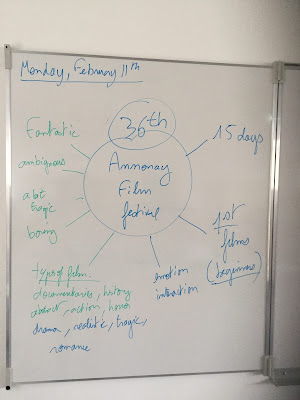 Monday, February 11th
36th
Annonay
Film
festival
15 days
1st
films
(beginners)
Fantastic
ambiguous
a bit
tragic
boring
types of film.
documentaries, history
abstract, action, horror
drama, realistic, tragic,
romance
emotion
interaction